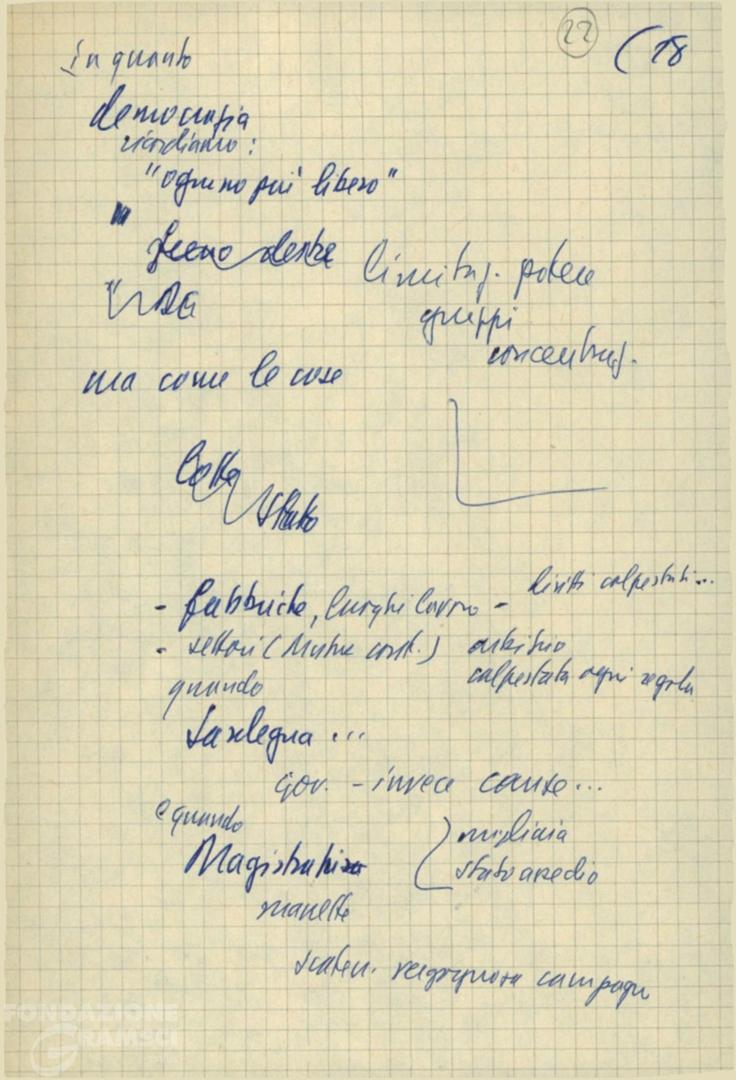 22 (18
In quanto
democrazia
ricordiamo:
"ognuno più libero"
" freno destre
" DC
limitaz. potere
gruppi
concentraz.
ma come le cose
lotte
stato
- fabbriche, luoghi lavoro - diritti calpestati...
- settori ( ) arbitrio
calpestata ogni regola
quando
Sardegna ...
gov. - invece cause...
e quando
Magistratura
manette
migliaia
stato assedio
scaten. vergognosa campagn
FONDAZIONE
GRAMSCI